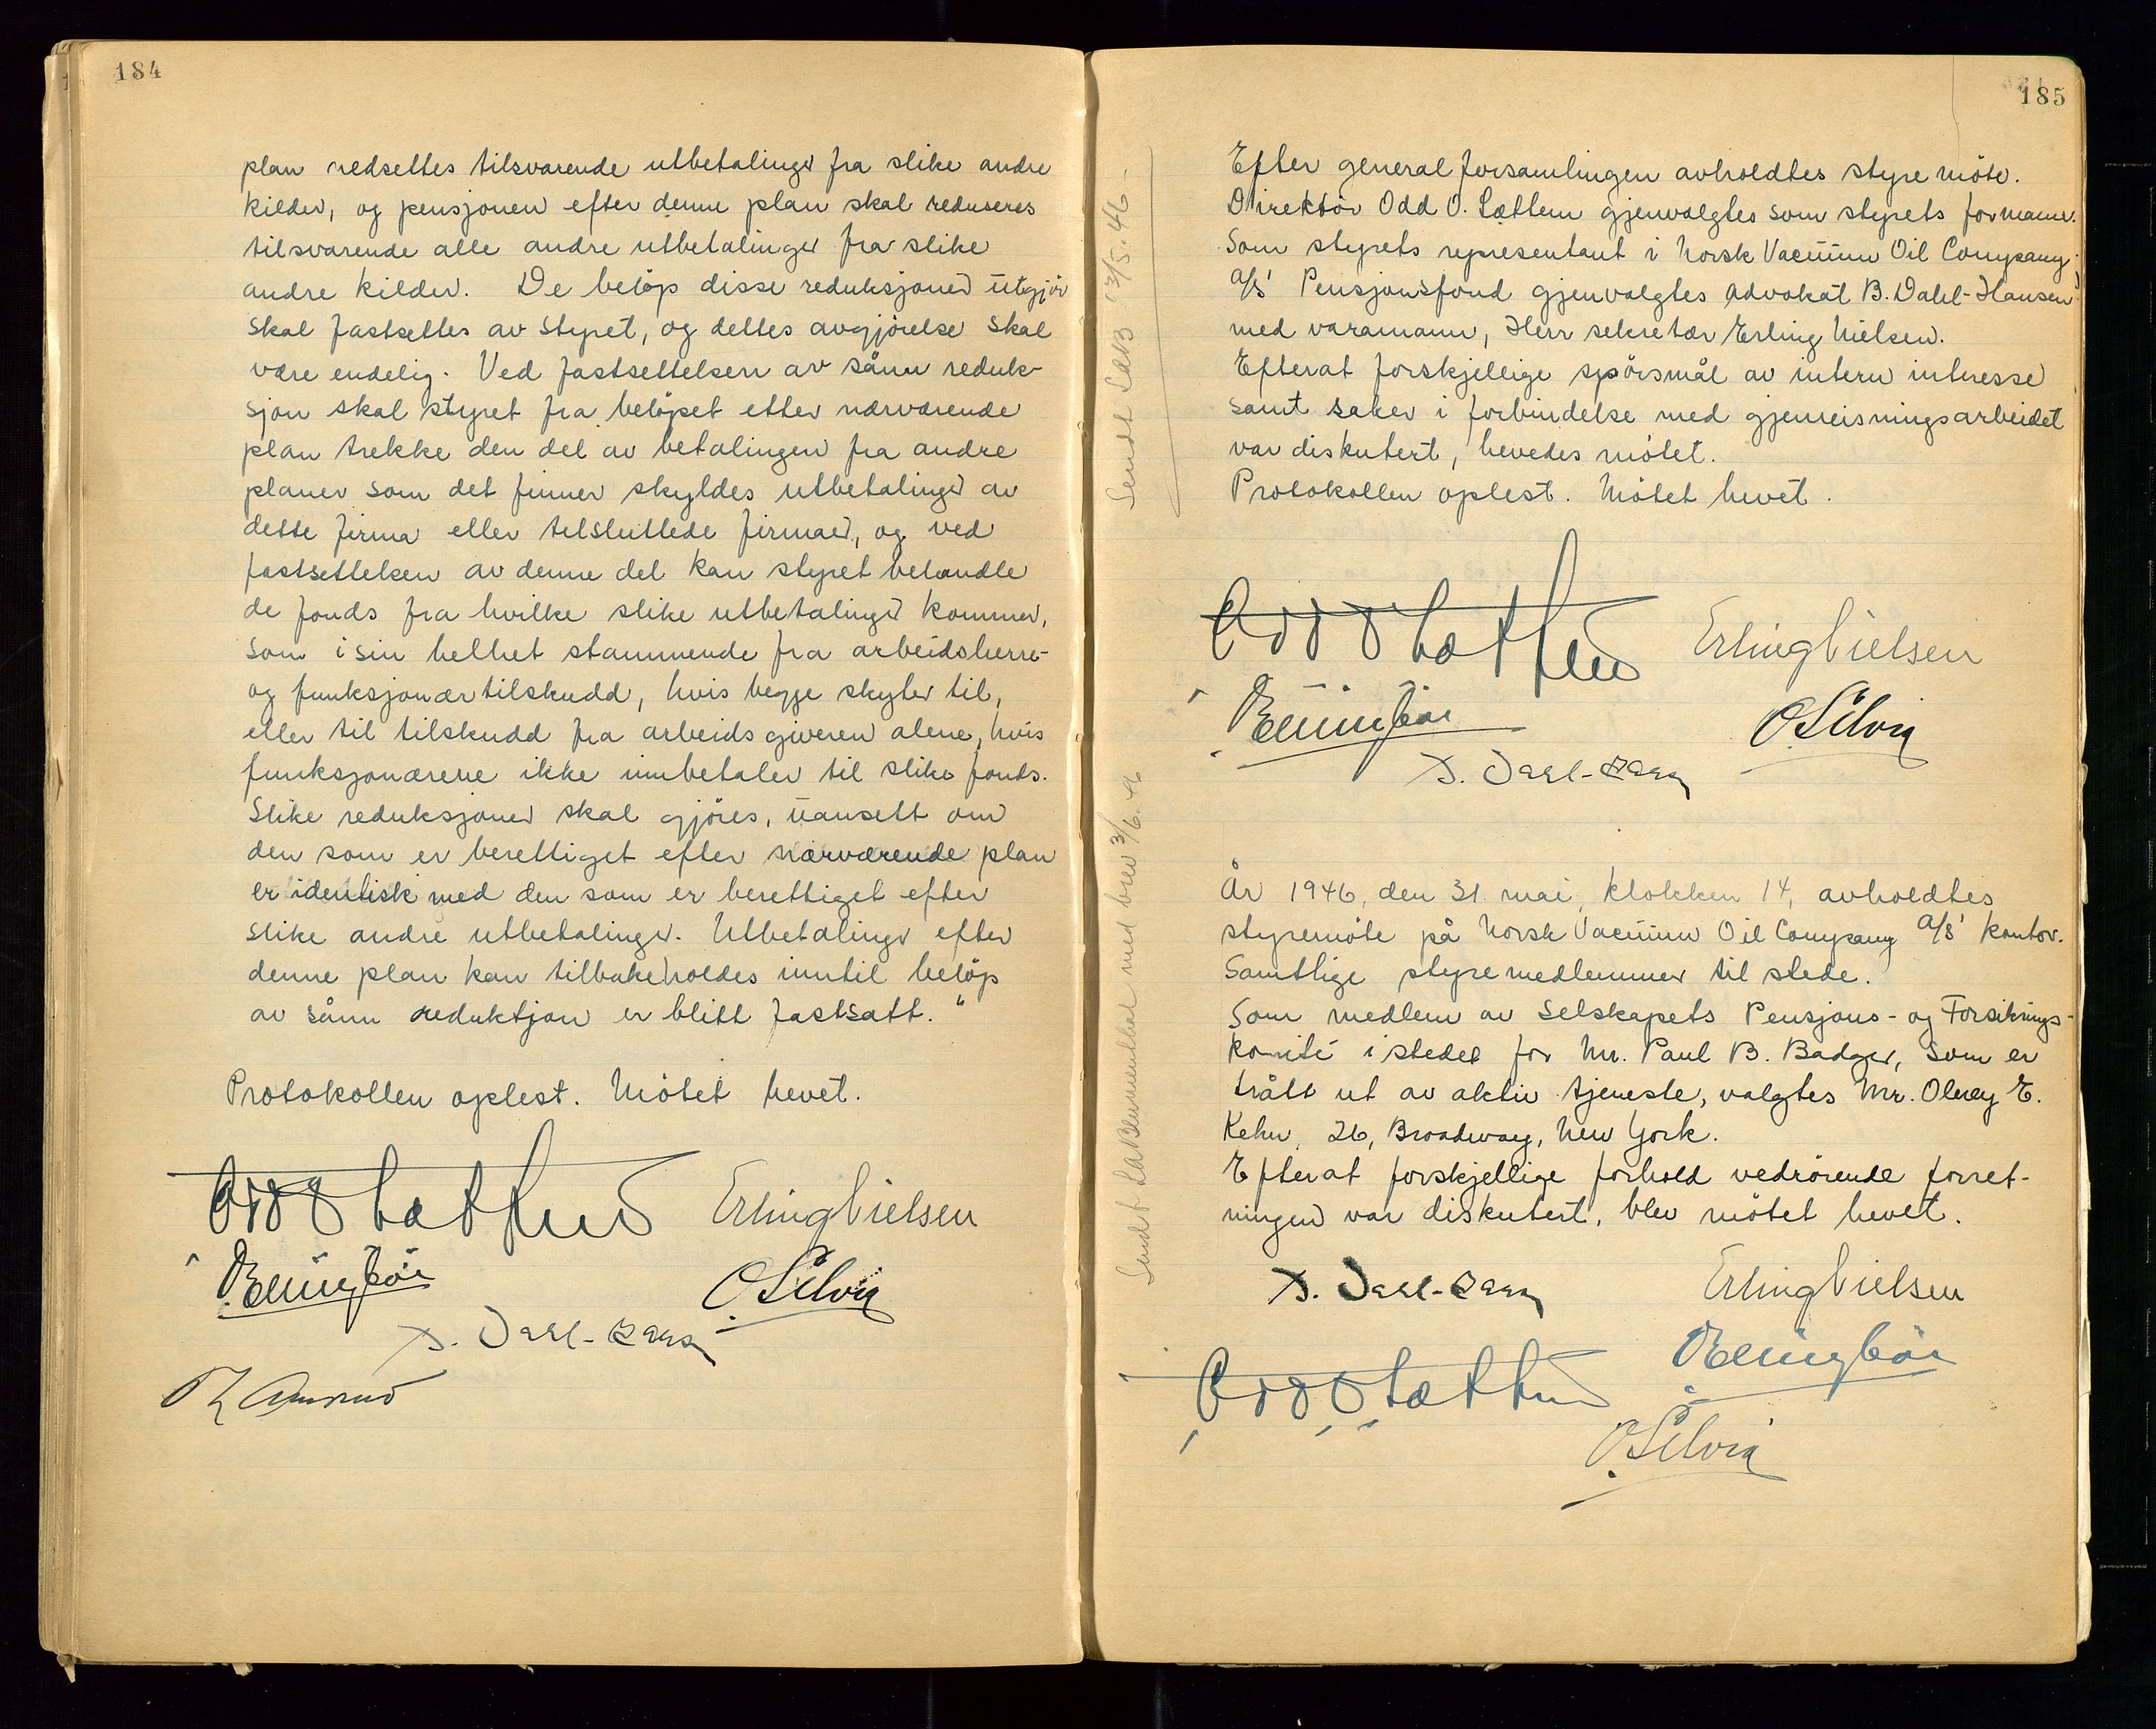 184
plan nedsettes tilsvarende utbetalinger fra slike andre
kilder, og pensjonen efter denne plan skal reduseres
tilsvarende alle andre utbetalinger fra slike
andre kilder. De beløp disse reduksjoner utgjør
skal fastsettes av styret, og dettes avgjørelse skal
være endelig. Ved fastsettelsen av sånn reduk-
sjon skal styret fra beløpet etter nærværende
plan trekke den del av betalingen fra andre
planer som det finner skyldes utbetalinger av
dette firma eller tilsluttede firmaer, og ved
fastsettelsen av denne del kan styret behandle
de fonds fra hvilke slike utbetalinger kommer,
som i sin helhet stammende fra arbeidsherre-
og funksjonærtilskudd, hvis begge skyter til,
eller til tilskudd fra arbeidsgiveren alene, hvis
funksjonærene ikke innbetaler til slike fonds.
Slike reduksjoner skal gjøres, uansett om
den som er berettiget efter nærværende plan
er identisk med den som er berettiget efter
slike andre utbetalinger. Utbetalinger efter
denne plan kan tilbakeholdes inntil beløp
av sånn reduktjon er blitt fastsatt."
Protokollen oplest. Møtet hevet.
Odd O Lættem Erling Nielsen
O Selvig
B. Dahl-Hansen
185
Efter generalforsamlingen avholdtes styremöte.
Direktör Odd O. Lættem gjenvalgtes som styrets formann.
Som styrets representant i Norsk Vacuum Oil Company
A/S' Pensjonsfond gjenvalgtes advokat B. Dahl-Hansen
med varamann, Herr sekretær Erling Nielsen.
Efterat forskjellige spörsmål av intern interesse
samt saker i forbindelse med gjenreisningsarbeidet
var diskutert, hevedes mötet.
Protokollen oplest. Mötet hevet.
Odd O Lættem Erling Nielsen
O Selvig
B. Dahl-Hansen
År 1946, den 31. mai, klokken 14, avholdtes
styremöte på Norsk Vacuum Oil Company A/S' kontor.
Samtlige styremedlemmer til stede.
Som medlem av Selskapets Pensjons- og Forsikrings-
komité i stedet for Mr. Paul B. Badger, som er
trått ut av aktiv tjeneste, valgtes Mr. Olney E.
Kehn, 26, Broadway, New York.
Efterat forskjellige forhold vedrörende forret-
ningen var diskutert, blev mötet hevet.
B. Dahl-Hansen Erling Nielsen
Odd O Lættem
O Selvig
Sendt 13/5.46-
Sendt med brev 3/6.46